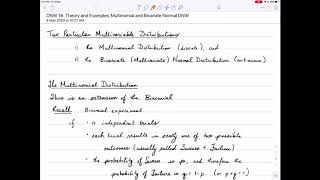 DNW 16. Theory and Examples, Multinomial and Bivariate Normal DNW
8 May 2020 at 10:27 AM
Two Particular Multivariable Distributions
i) the Multinomial Distribution (discrete), and
ii) the Bivariate (Multivariate) Normal Distribution (continuous)
The Multinomial Distribution
This is an extension of the Binomial
Recall Binomial experiment
if • n independent trials
• each trial results in exactly one of two possible
outcomes (usually called Success & Failure)
• the probability of Success is p, and therefore the
probability of Failure is q = 1-p (or p+q=1)